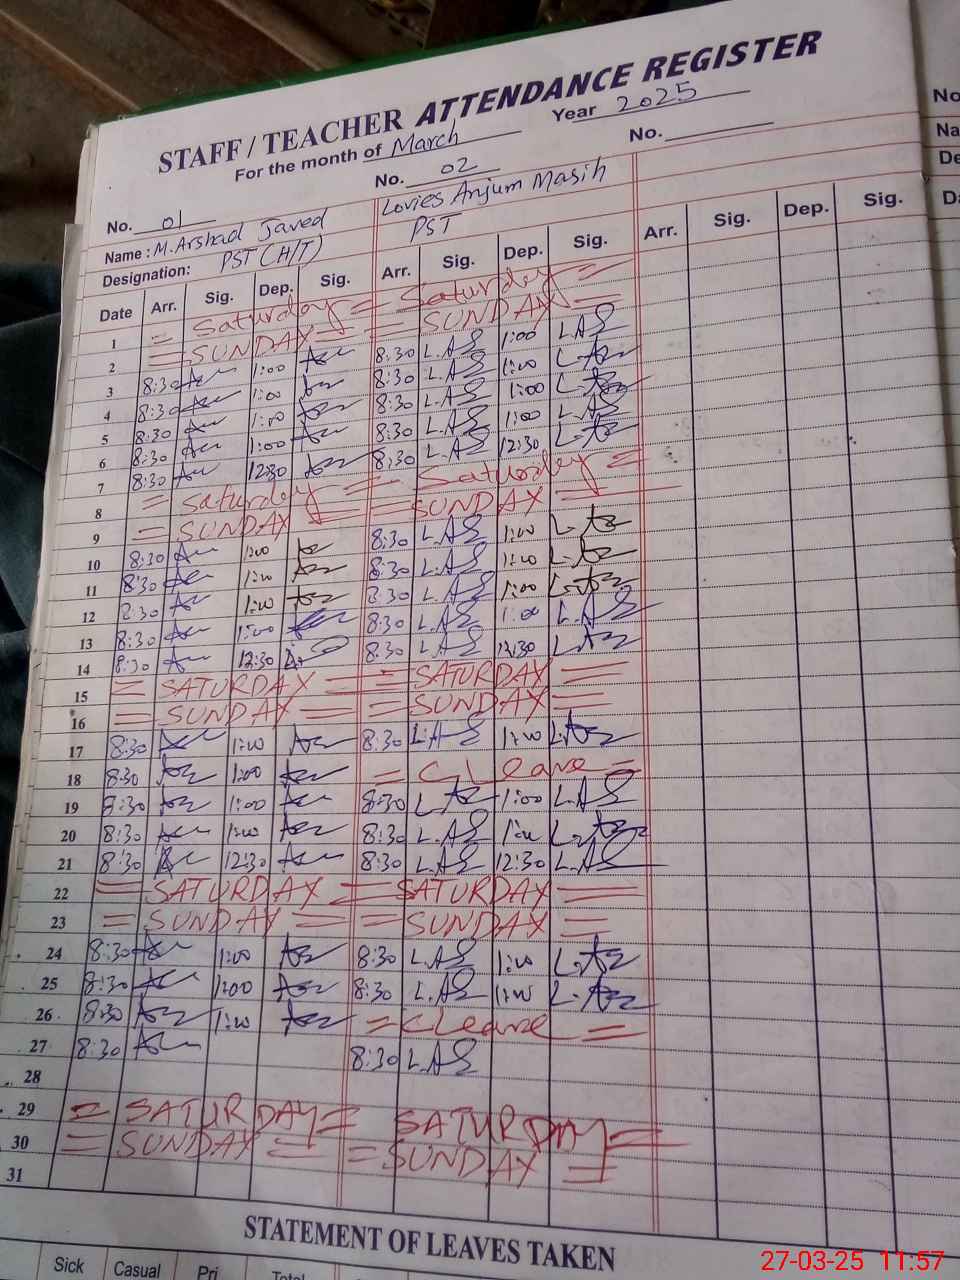 STAFF / TEACHER ATTENDANCE REGISTER
For the month of March Year 2025
No. 01 No. 02 No.
Name : M. Arshad Javed Lovies Anjum Masih
Designation: PST (H/T) PST
Date Arr. Sig. Dep. Sig. Arr. Sig. Dep. Sig. Arr. Sig. Dep. Sig.
1 = Saturday = Saturday =
2 = SUNDAY = = SUNDAY =
3 8:30 1:00 8:30 L.AS 1:00 L.AS
4 8:30 1:00 8:30 L.AS 1:00
5 8:30 1:00 8:30 L.AS 1:00
6 8:30 1:00 8:30 L.AS 1:00 L.AS
7 8:30 12:30 8:30 L.AS 12:30
8 = Saturday = Saturday =
9 = SUNDAY = = SUNDAY =
10 8:30 1:00 8:30 L.AS 1:00
11 8:30 1:00 8:30 L.AS 1:00
12 8:30 1:00 8:30 L.AS 1:00
13 8:30 1:00 8:30 L.AS 1:00 L.AS
14 8:30 12:30 8:30 L.AS 12:30
15 = SATURDAY = = SATURDAY =
16 = SUNDAY = = SUNDAY =
17 8:30 1:00 8:30 L.AS 1:00
18 8:30 1:00 = C Leave =
19 8:30 1:00 8:30 1:00 L.AS
20 8:30 1:00 8:30 L.AS 1:00
21 8:30 12:30 8:30 L.AS 12:30 L.AS
22 = SATURDAY = SATURDAY =
23 = SUNDAY = = SUNDAY =
24 8:30 1:00 8:30 L.AS 1:00
25 8:30 1:00 8:30 L.AS 1:00
26 8:30 1:00 = C Leave =
27 8:30 8:30 L.AS
28
29 = SATURDAY = SATURDAY =
30 = SUNDAY = = SUNDAY =
31
STATEMENT OF LEAVES TAKEN
Sick Casual Pri Total
27-03-25 11:57